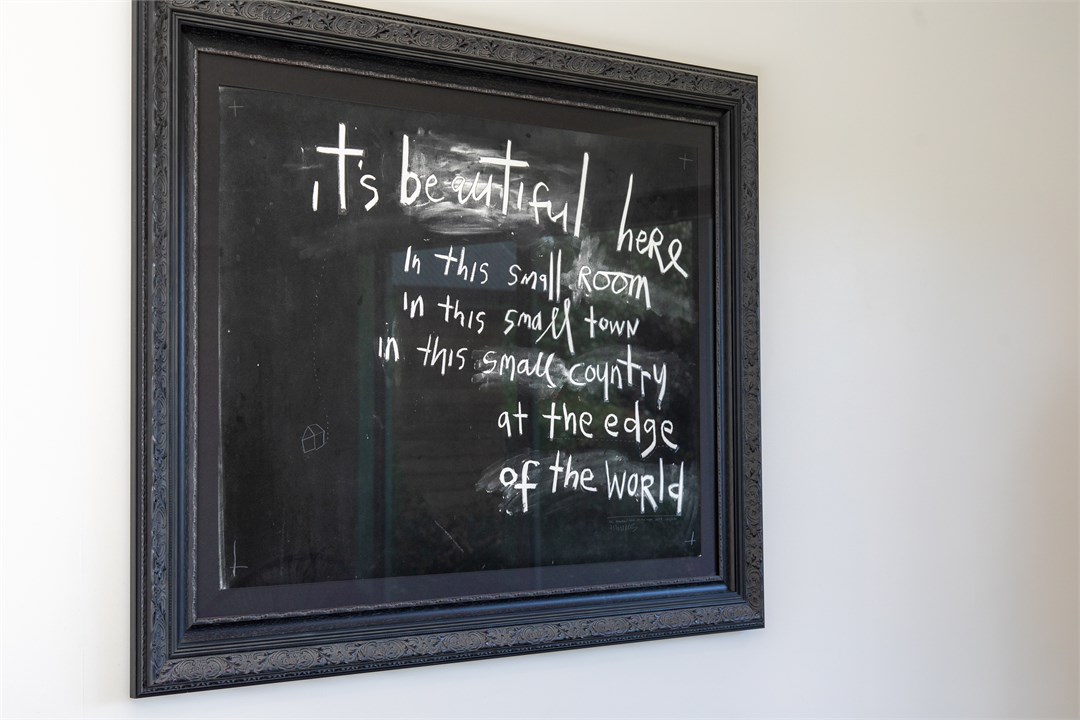 it's beautiful here
In this small Room
in this small town
in this small country
at the edge
of the world